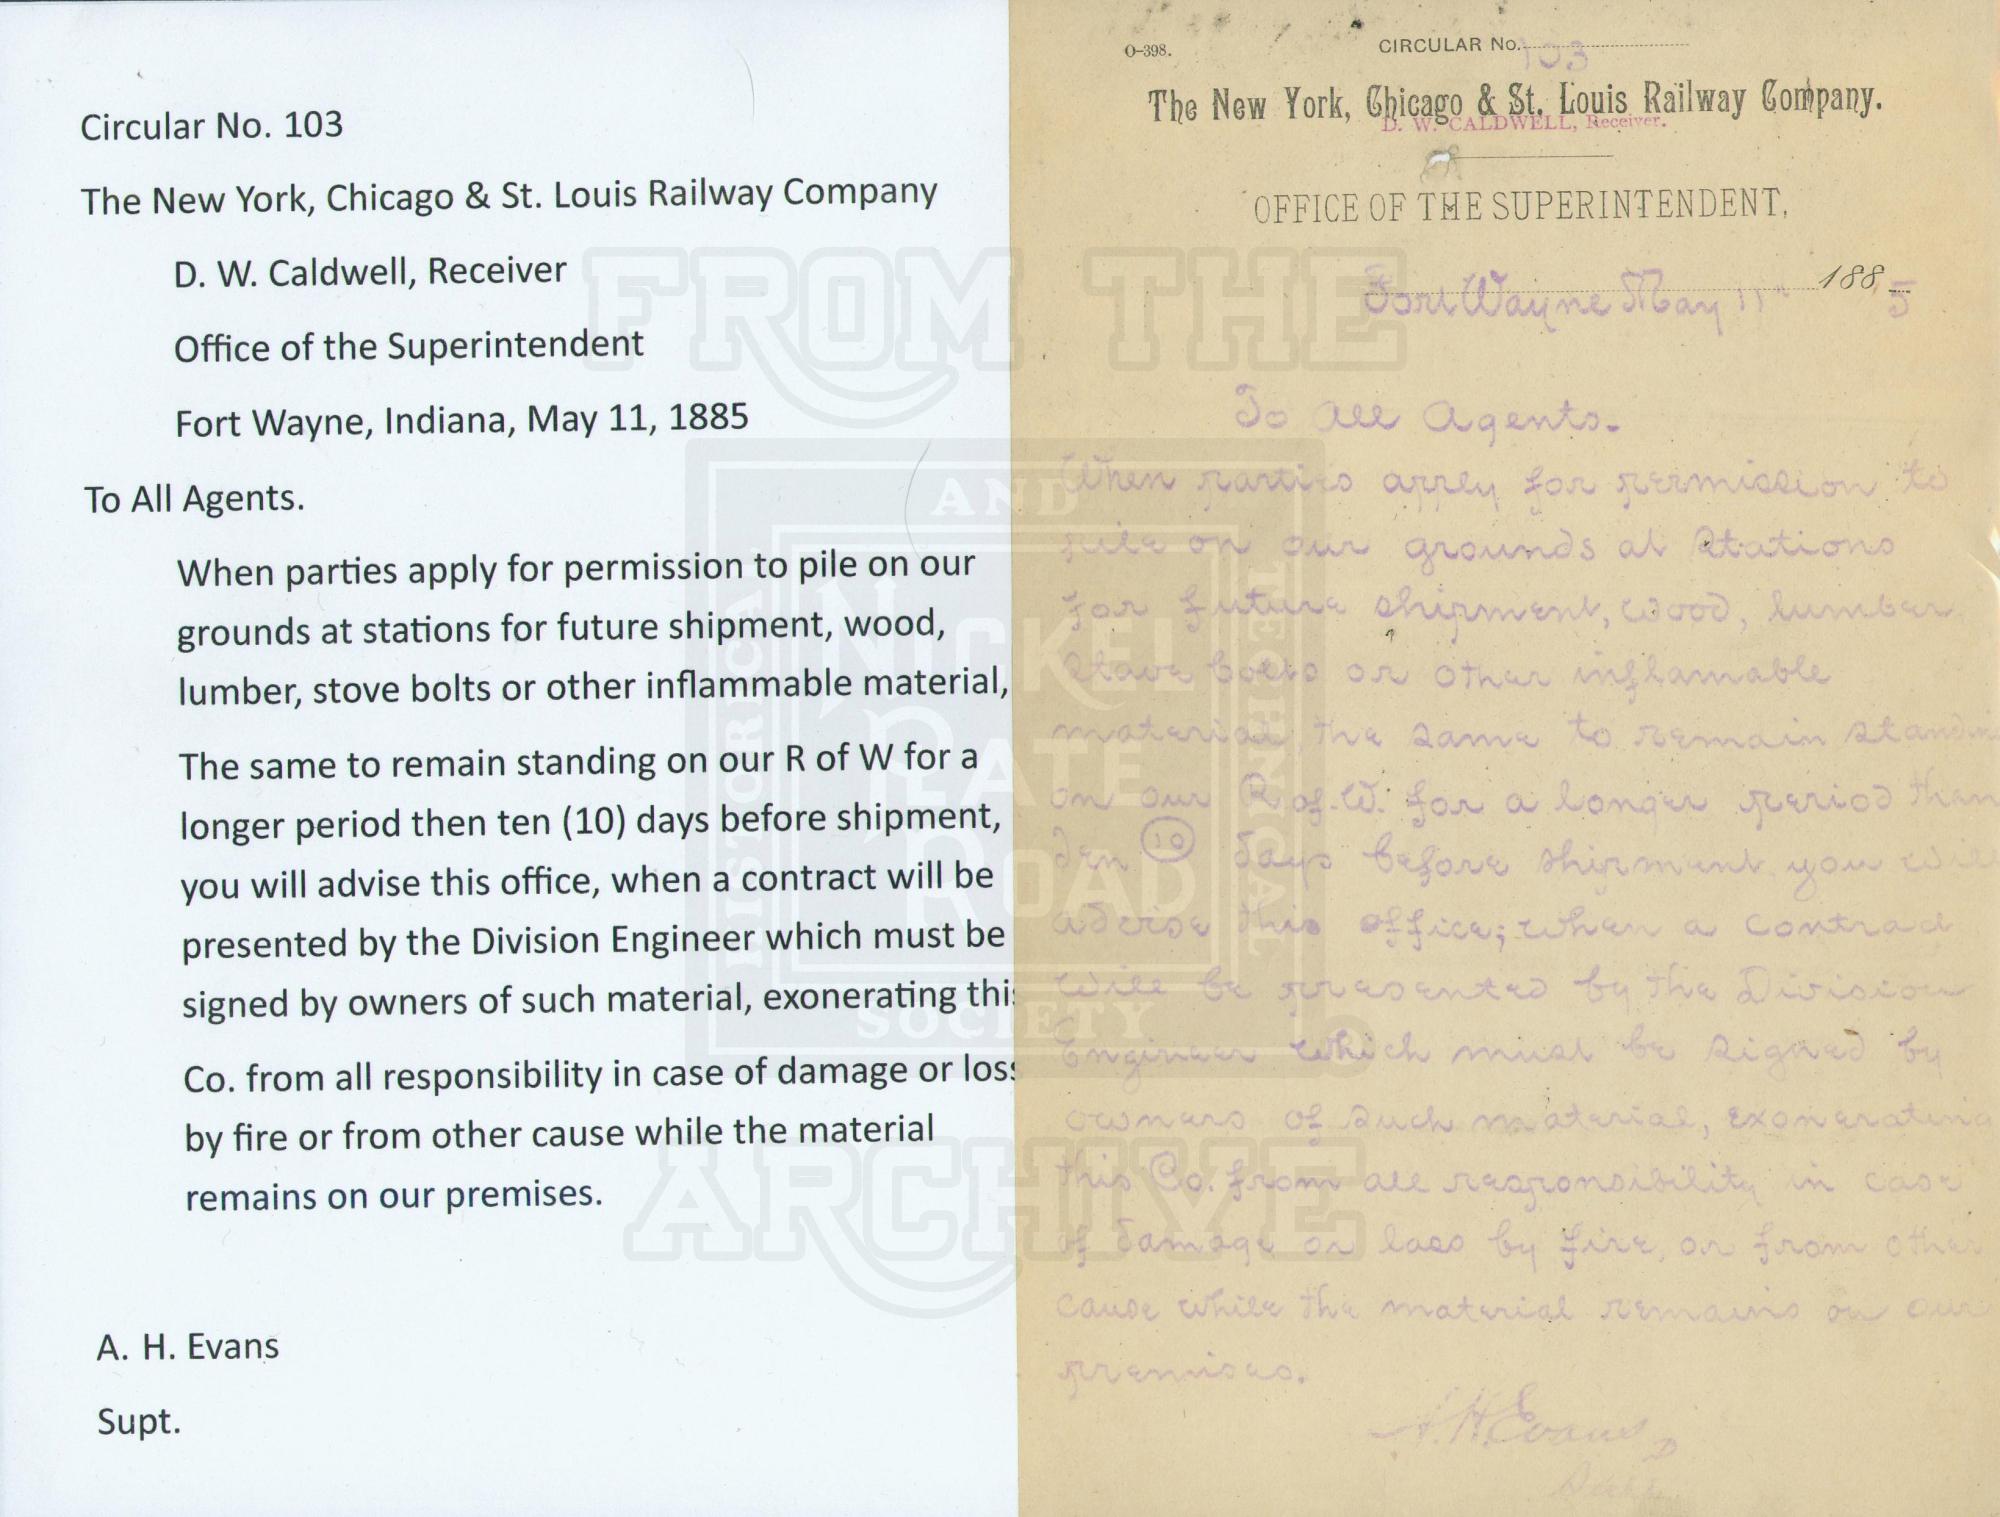 Circular No. 103
The New York, Chicago & St. Louis Railway Company
D. W. Caldwell, Receiver
Office of the Superintendent
Fort Wayne, Indiana, May 11, 1885
To All Agents.
When parties apply for permission to pile on our
grounds at stations for future shipment, wood,
lumber, stove bolts or other inflammable material,
The same to remain standing on our R of W for a
longer period then ten (10) days before shipment,
you will advise this office, when a contract will be
presented by the Division Engineer which must be
signed by owners of such material, exonerating this
Co. from all responsibility in case of damage or loss
by fire or from other cause while the material
remains on our premises.
A. H. Evans
Supt.
O-398.
CIRCULAR No. 103
The New York, Chicago & St. Louis Railway Company.
D. W. CALDWELL, Receiver.
OFFICE OF THE SUPERINTENDENT,
Fort Wayne May 11th 1885
To All Agents.
When parties apply for permission to
pile on our grounds at stations
for future shipment, wood, lumber
stave bolts or other inflamable
material, the same to remain standing
on our R of. W. for a longer period than
ten 10 days before shipment you will
advise this office; when a contract
will be presented by the Division
Engineer which must be signed by
owners of such material, exonerating
this Co. from all responsibility in case
of damage or loss by fire, or from other
cause while the material remains on our
premises.
A. H. Evans
Supt
FROM THE
HISTORICAL AND TECHNICAL SOCIETY
NICKEL
PLATE
ROAD
ARCHIVE